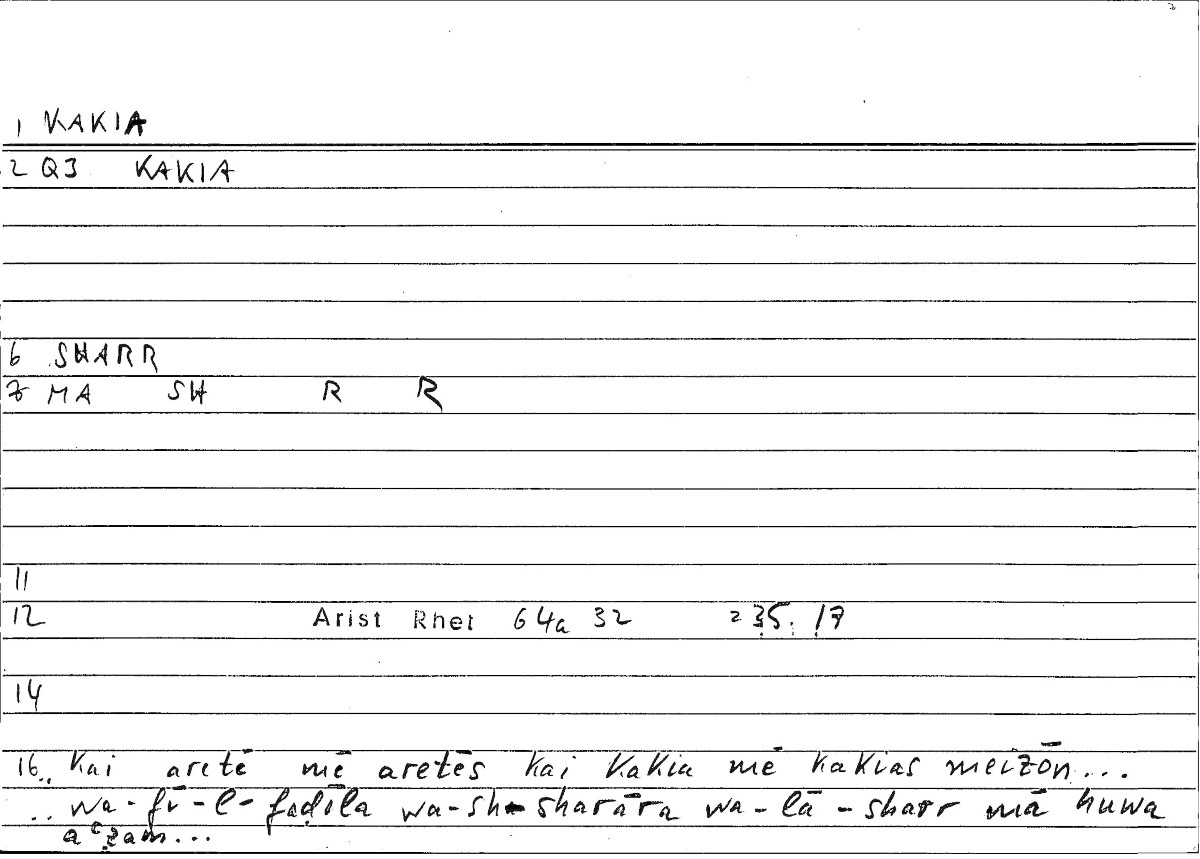 1 KAKIA
2 Q3 KAKIA
6 SHARR
7 MA SH R R
11
12 Arist Rhet 64a 32 235. 17
14
16.. Kai aretē mē aretēs kai kakia mē kakias meizōn...
.. wa-fī-l-faḍīla wa-sh-sharāra wa-lā-sharr mā huwa
aʿẓam...